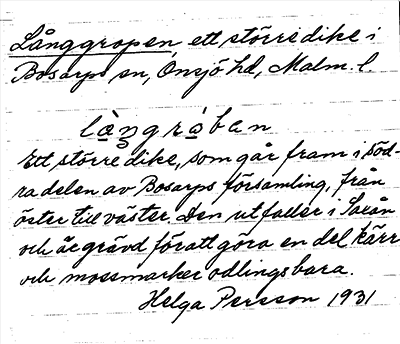 Långgropen, ett större dike i
Bosarps sn, Onsjö hd, Malm. l.
làŋgràban
Ett större dike, som går fram i söd-
ra delen av Bosarps församling, från
öster till väster. Den utfaller i Saxån
och är grävd för att göra en del kärr
och mossmarker odlingsbara.
Helga Persson 1931